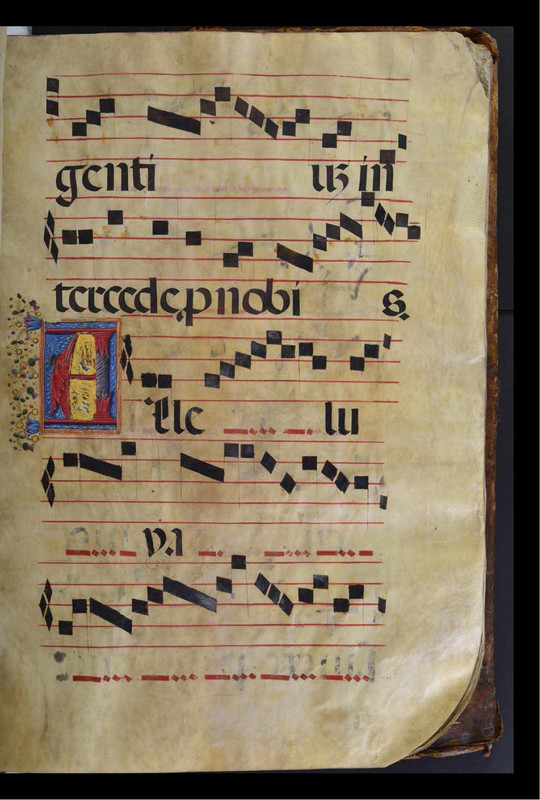 genti uȝ in
tercede p nobi s.
Alle lu
ya